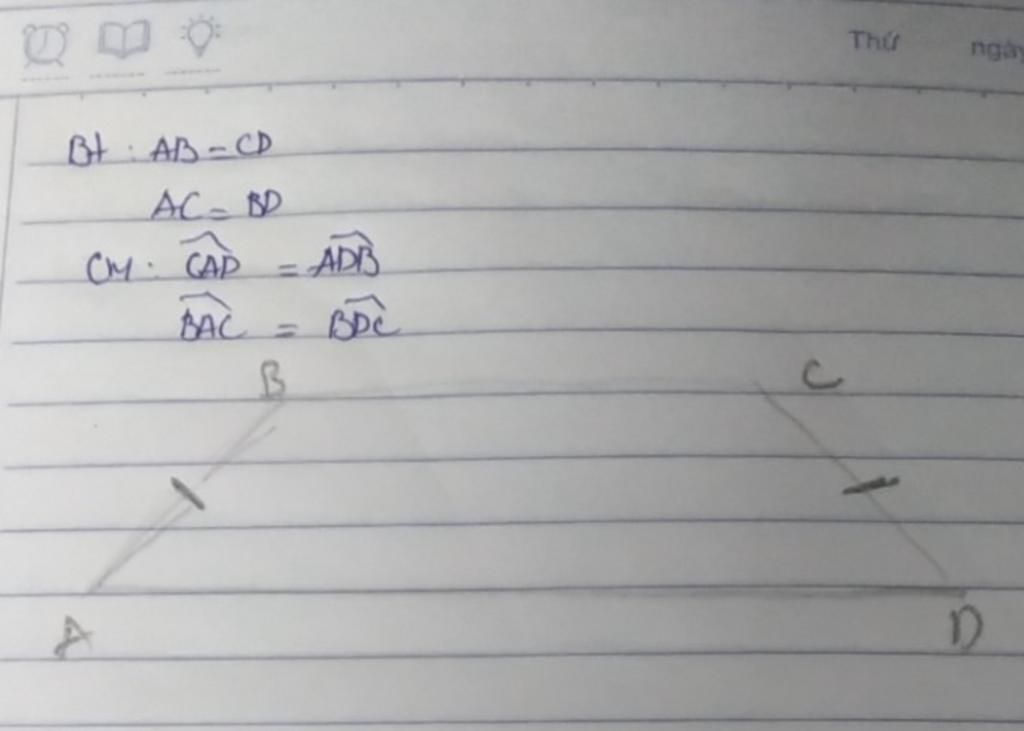 Thứ ngày
Bt : AB = CD
AC = BD
CM : CAD = ADB
BAC = BDC
B C
A D